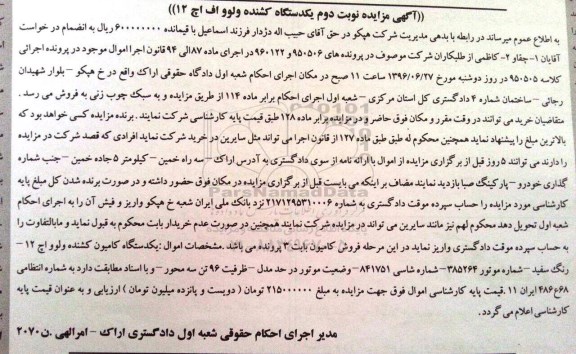 ((آگهی مزایده نوبت دوم یکدستگاه کشنده ولوو اف اچ ۱۲))
به اطلاع عموم میرساند در رابطه با بدهی مدیریت شرکت هپکو در حق آقای حبیب اله دژدار فرزند اسماعیل با قیمانده ۶۰۰۰۰۰۰۰۰ ریال به انضمام در خواست
آقایان ۱- جفاو ۲- کاظمی از طلبکاران شرکت موصوف در پرونده های ۹۵۰۵۰۶ و ۹۶۰۱۲۲ در اجرای ماده ۸۷الی ۹۴ قانون اجرا اموال موجود در پرونده اجرائی
کلاسه ۹۵۰۵۰۵ در روز دوشنبه مورخ ۱۳۹۶/۰۶/۲۷ ساعت ۱۱ صبح در مکان اجرای احکام شعبه اول دادگاه حقوقی اراک واقع در خ هپکو – بلوار شهیدان
رجائی – ساختمان شماره ۴ دادگستری کل استان مرکزی – شعبه اول اجرای احکام برابر ماده ۱۱۴ از طریق مزایده و به سبک چوب زنی به فروش می رسد .
متقاضیان خرید می توانند در وقت مقرر و مکان فوق حاضر و در مزایده برابر ماده ۱۲۸ طبق قیمت پایه کارشناسی شرکت نمایند . برنده مزایده کسی خواهد بود که
بالاترین مبلغ را پیشنهاد نماید همچنین محکوم له طبق طبق ماده ۱۲۷ از قانون اجرا می تواند مثل سایرین در خرید شرکت نماید افرادی که قصد شرکت در مزایده
را دارند می توانند ۵ روز قبل از برگزاری مزایده از اموال با ارائه نامه از سوی دادگستری به آدرس اراک – سه راه خمین – کیلومتر ۵ جاده خمین – جنب شماره
گذاری خودرو – پارکینگ صبا بازدید نمایند مضاف بر اینکه می بایست قبل از برگزاری مزایده در مکان فوق حضور داشته و در صورت برنده شدن کل مبلغ پایه
کارشناسی مورد مزایده را حساب سپرده موقت دادگستری به شماره ۲۱۷۱۲۹۵۳۱۰۰۰۶ نزد بانک ملی ایران شعبه خ هپکو واریز و فیش آن را به اجرای احکام
شعبه اول تحویل دهد محکوم لهم نیز مانند سایرین می تواند در مزایده شرکت نمایند همچنین در صورت عدم خریدار بابت محکوم به قبول نماید و مابالتفاوت را
به حساب سپرده موقت دادگستری واریز نماید در این مرحله فروش کامیون بابت ۳ پرونده می باشد .مشخصات اموال :یکدستگاه کامیون کشنده ولوو اچ ۱۲ –
رنگ سفید – شماره موتور ۳۸۵۲۶۴ – شماره شاسی ۸۴۱۷۵۱ – وضعیت موتور در حد مدل – ظرفیت ۹۶ تن سه محور – و با اسناد مطابقت دارد به شماره انتظامی
۶۸ع۴۸۶ ایران ۱۱ .قیمت پایه کارشناسی اموال فوق جهت مزایده به مبلغ ۲۱۵۰۰۰۰۰۰ تومان ( دویست و پانزده میلیون تومان ) ارزیابی و به عنوان قیمت پایه
کارشناسی اعلام می گردد .
مدیر اجرای احکام حقوقی شعبه اول دادگستری اراک – امرالهی .ن۲۰۷۰
ParsNamadData